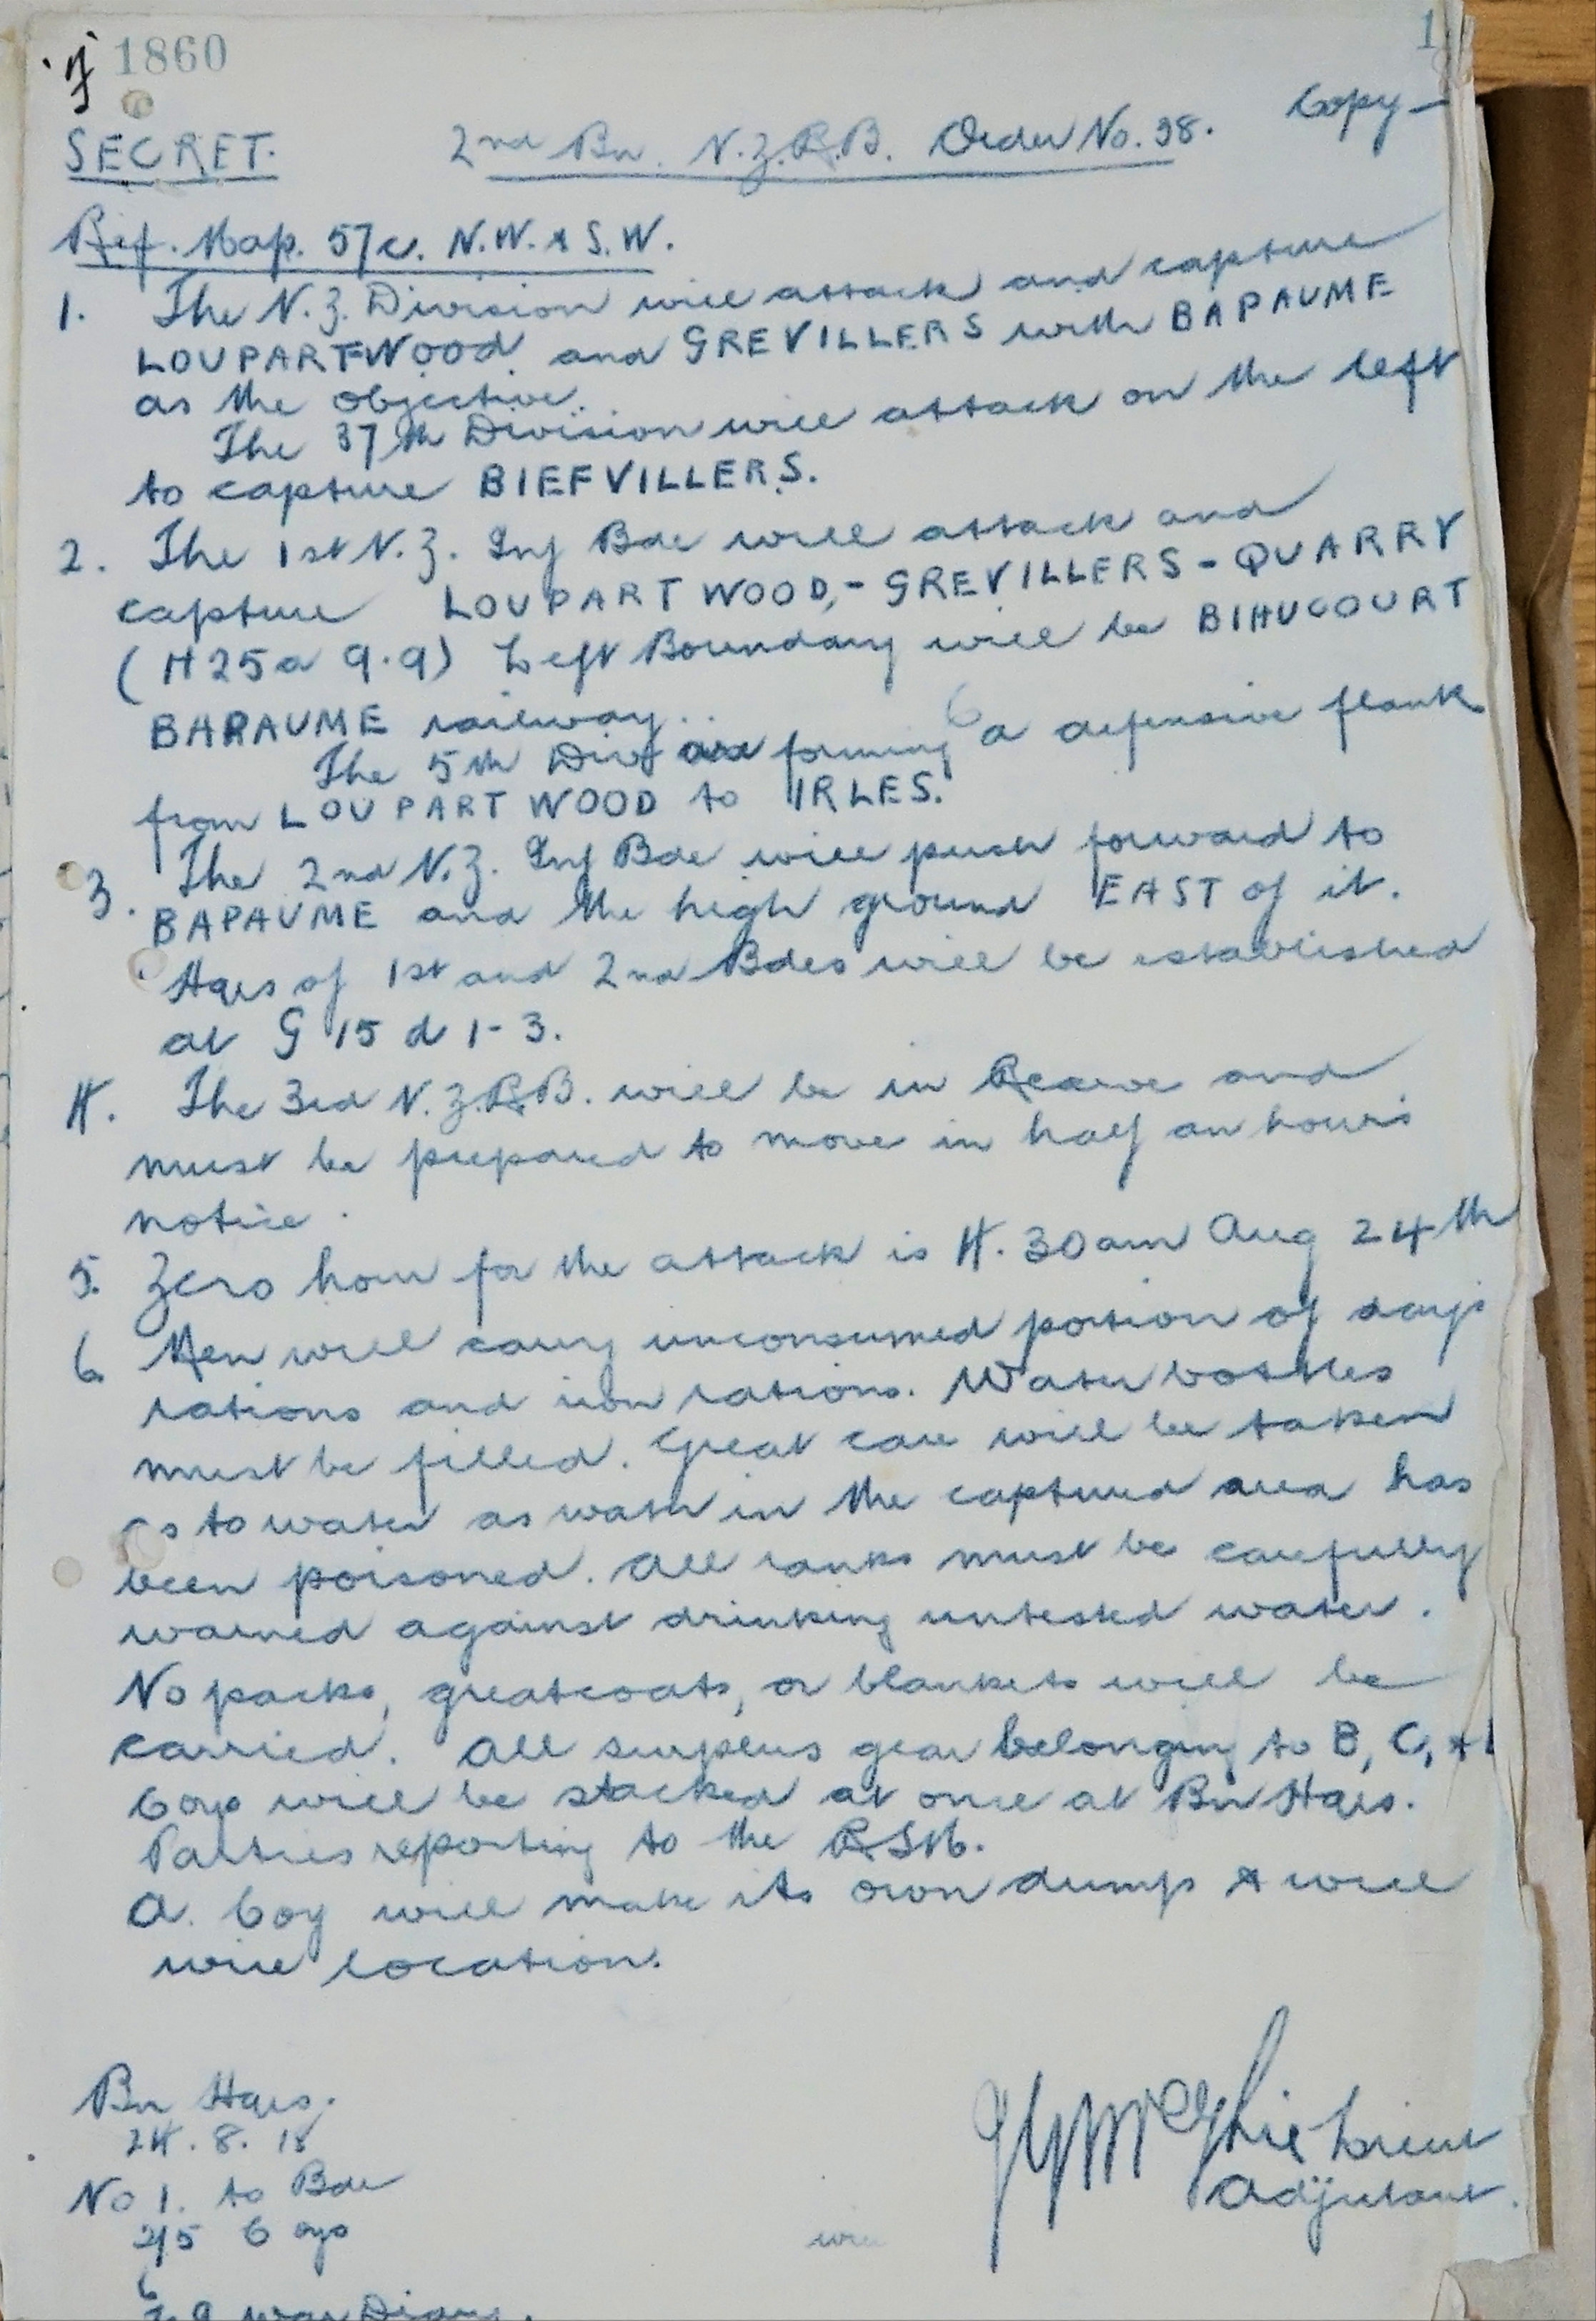 'J' 1860
1
SECRET. 2nd Bn. N.Z.R.B. Order No. 38. Copy
Ref. Map. 57c. N.W. & S.W.
1. The N.Z. Division will attack and capture
LOUPART WOOD and GREVILLERS with BAPAUME
as the objective.
The 37th Division will attack on the left
to capture BIEFVILLERS.
2. The 1st N.Z. Inf Bde will attack and
capture LOUPART WOOD, - GREVILLERS - QUARRY
(H25a 9.9) Left Boundary will be BIHUCOURT
BAPAUME railway.
The 5th Div are forming a defensive flank
from LOUPART WOOD to IRLES.
3. The 2nd N.Z. Inf Bde will push forward to
BAPAUME and the high ground EAST of it.
Hqrs of 1st and 2nd Bdes will be established
at G 15 d 1-3.
4. The 3rd N.Z.R.B. will be in Reserve and
must be prepared to move in half an hour's
notice.
5. Zero hour for the attack is 4.30am Aug 24th
6. Men will carry unconsumed portion of days
rations and iron rations. Water bottles
must be filled. Great care will be taken
as to water as water in the captured area has
been poisoned. All ranks must be carefully
warned against drinking untested water.
No packs, greatcoats, or blankets will be
carried. All surplus gear belonging to B, C, &
Coys will be stacked at once at Bn Hqrs.
Parties reporting to the RSM.
A. Coy will make its own dump & will
wire location.
Bn Hqrs.
24. 8. 18
No 1. to Bde
2/5 Coys
6
7-9 War Diary.
Lieut
Adjutant.